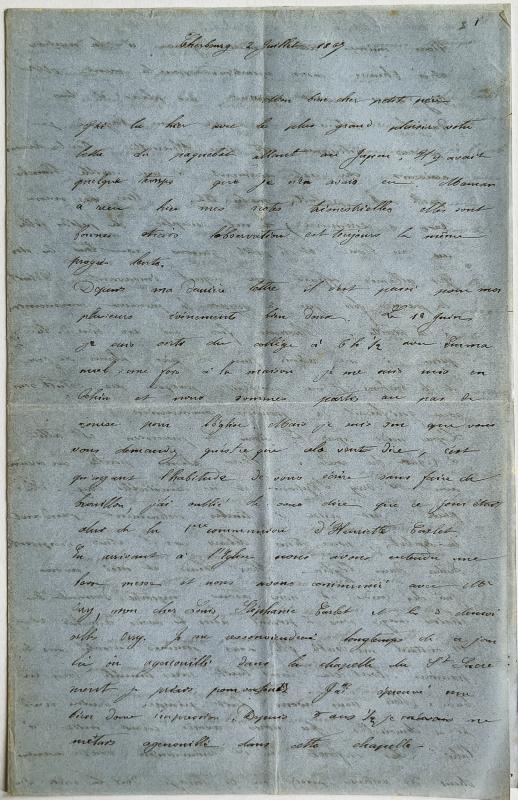 1
Cherbourg 2 Juillet 18
Mon bien cher petit père
J'ai lu hier avec le plus grand plaisir votre
lettre du paquebot allant au Japon. Il y avait
quelque temps que je n'en avais eu. Maman
a reçu hier mes notes trimestrielles elles sont
bonnes mais l'observation est toujours la même
progrès lents.
Depuis ma dernière lettre il s'est passé pour moi
plusieurs évènements bien doux. Le 12 Juin
je suis sorti du collège à 6 h ½ avec Emma
nuel; une fois à la maison je me suis mis en
et nous sommes partis au pas de
course pour l'église Mais je suis sûr que vous
vous demandez qu'est ce que cela veut dire, c'est
qu'ayant l'habitude de vous écrire sans faire de
brouillon, j'ai oublié de vous dire que ce jour était
celui de la 1ere communion d'Henriette
En arrivant à l'Eglise nous avons entendu une
bonne messe et nous avons communié avec Mr
mon cher Louis, Stéphanie et les 3 demoi
selles Je me ressouviendrai longtemps de ce jour
là où agenouillé dans la chapelle du St Sacre
ment je priais pour J'ai éprouvé une
bien douce impression. Depuis ans ½ je n'avais ne
m'étais agenouillé dans cette chapelle.